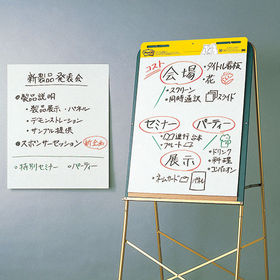 新製品発表会
●製品説明
・製品展示・パネル
・デモンストレーション
・サンプル提供
●スポンサーセッション 新企画
○特別セミナー ○パーティー
コスト
会場
・タイトル看板
・花
・スクリーン
・同時通訳
スライド
セミナー
パーティー
・進行台本
・アルバート
・ドリンク
・料理
・コンパニオン
展示
・ネームカード
パネル